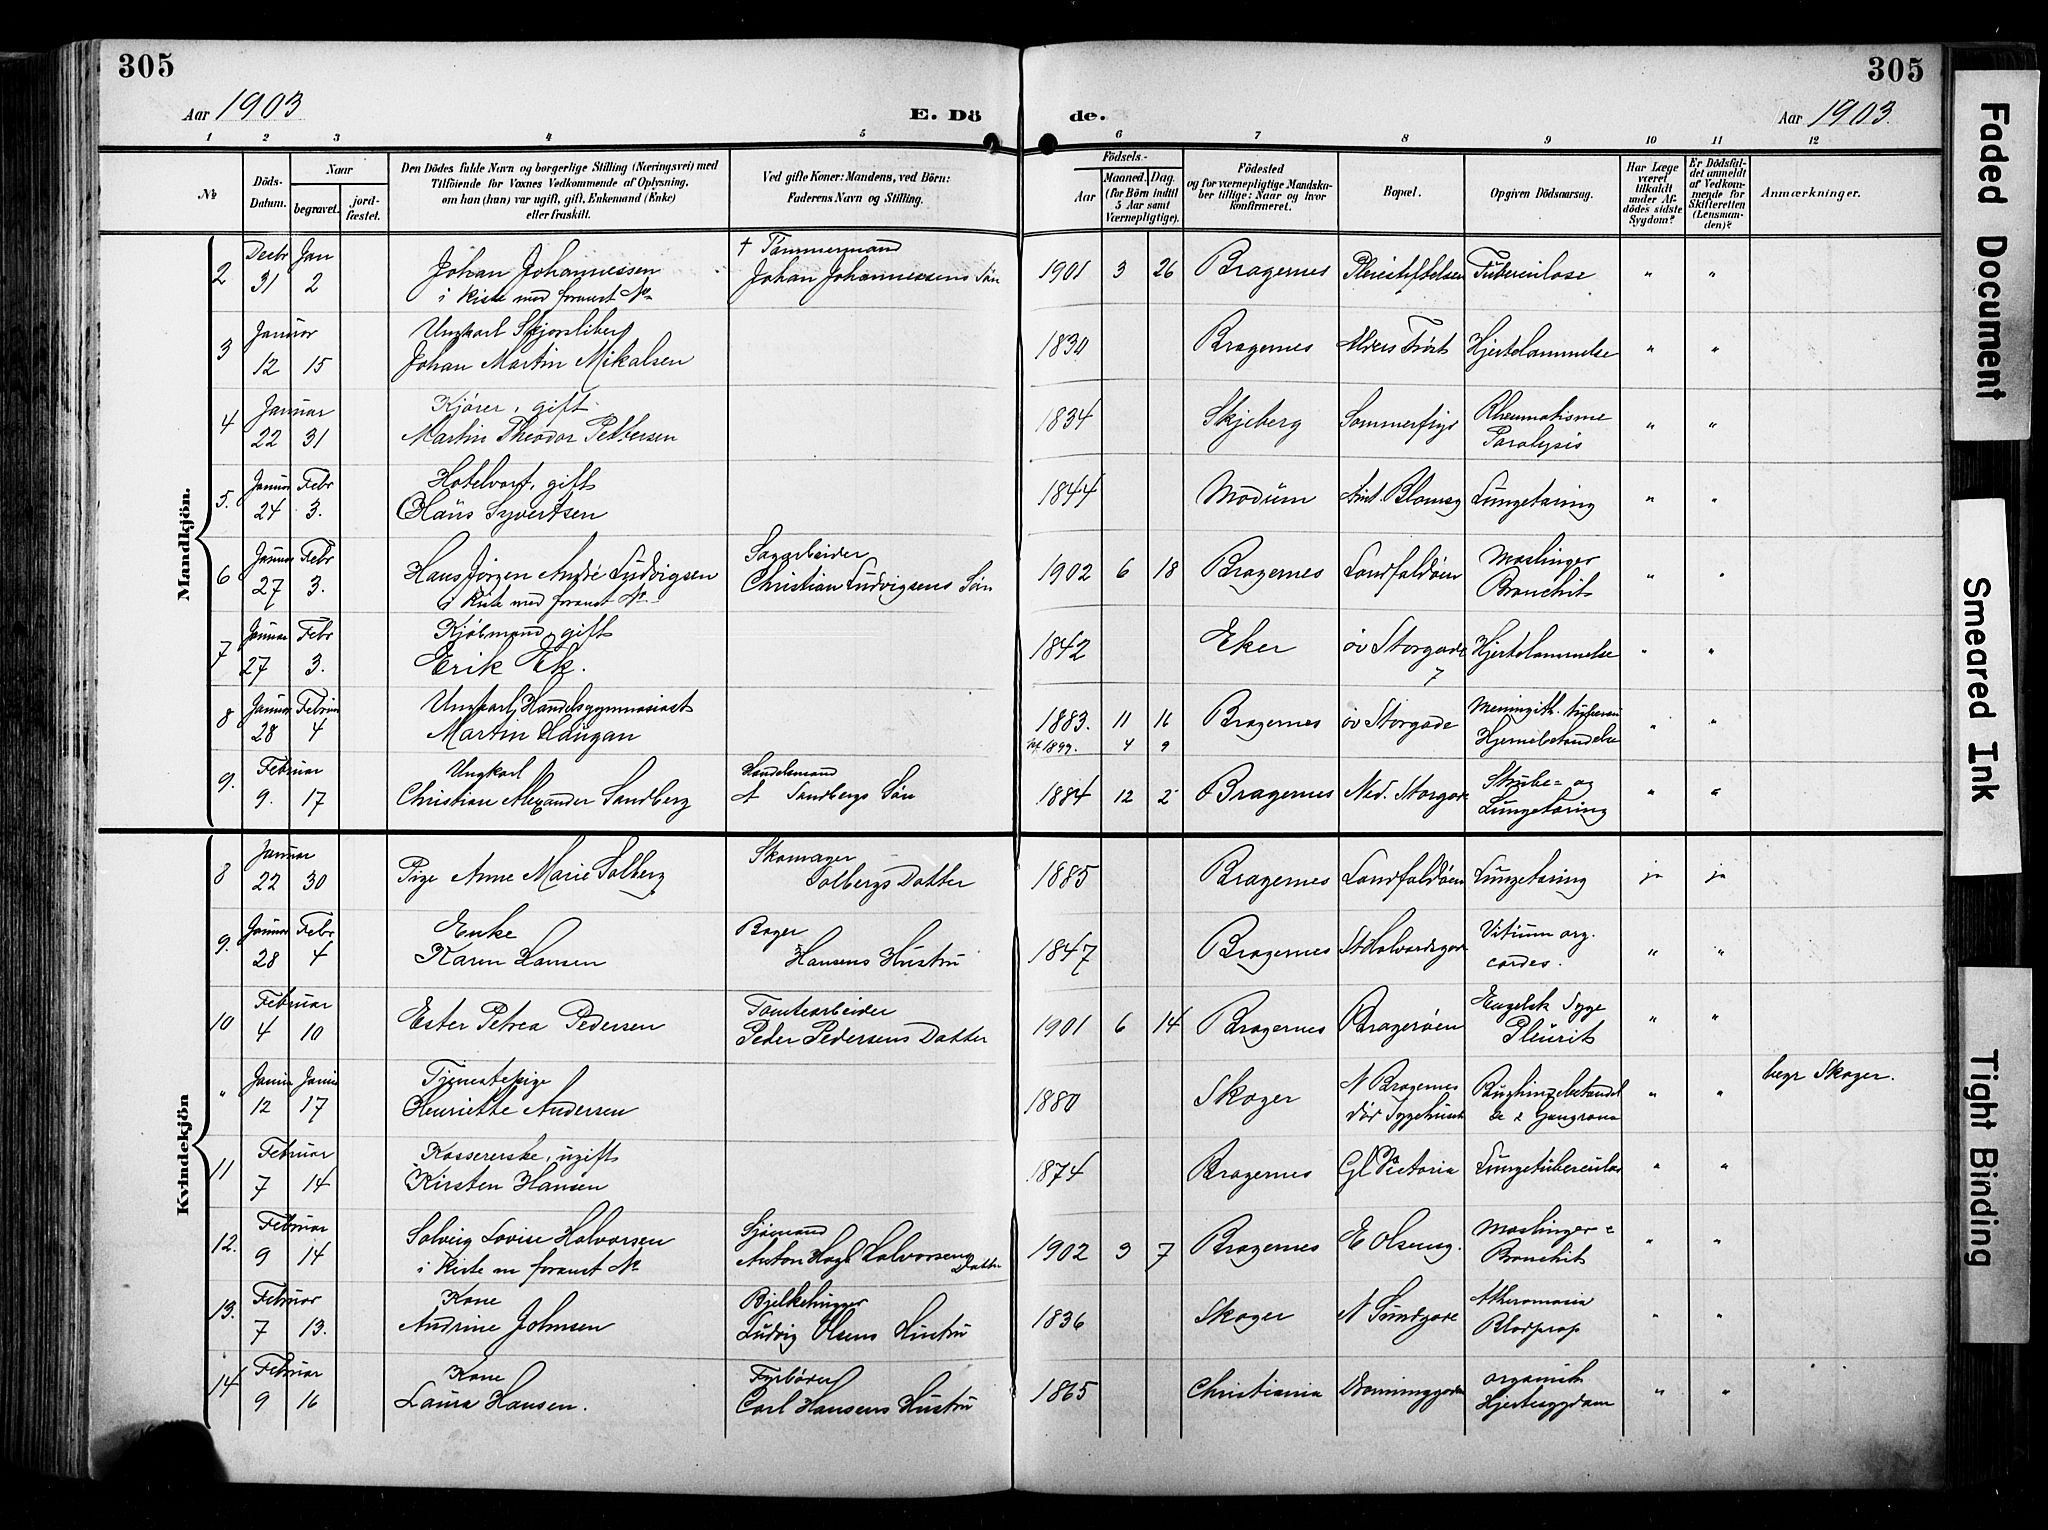 305
305
Aar 1903
E. Dö
de.
Aar 1903.
1 2 3 4 5 6 7 8 9 10 11 12
№
Döds-Datum.
Naar
begravet.
jord-fæstet.
Den Dödes fulde Navn og borgerlige Stilling (Næringsvei) med
Tilföiende for Voxnes Vedkommende af Oplysning,
om han (hun) var ugift, gift, Enkemand (Enke)
eller fraskilt.
Ved gifte Koner: Mandens, ved Börn:
Faderens Navn og Stilling.
Födsels-
Aar
Maaned. Dag.
(for Börn indtil
5 Aar samt
Værnepligtige).
Födested
og for værnepligtige Mandska-
ber tillige: Naar og hvor
konfirmeret.
Bopæl.
Opgiven Dödsaarsag.
Har Læge
været
tilkaldt
under Af-
dödes sidste
Sygdom?
Er Dödsfal-
det anmeldt
af Vedkom-
mende for
Skifteretten
(Lensman-
den)?
Anmærkninger.
Mandkjön.
Decbr Jan † Tømmermand
2 31 2 Johan Johannessen Johan Johannessens Søn 1901 3 26 Bragernes Pleiestiftelsen Tuberculose " "
i Kiste med foranst №
Januar Ungkarl
3 12 15 Johan Martin Mikalsen 1830 Bragernes Hjertelammelse " "
Januar Kjører, gift
4 22 31 Martin Theodor Pettersen 1834 Skjeberg Rheumatisme " "
Paralysis
Januar Febr Hotelvært, gift
5. 24 3. Hans Syvertsen 1844 Modum Lungetæring " "
Januar Febr Sagarbeider Mæslinger
6 27 3. Hans Jørgen André Ludvigsen Christian Ludvigsens Søn 1902 6 18 Bragernes Landfaldøen Bronchit " "
i Kiste med foranst №
Januar Febr Kjøbmand, gift
7 27 3. Erik Ek. 1842 Eker øv Storgade Hjertelammelse " "
7
Januar Februar Ungkarl, Handelsgymnasiast Meningith.
8 28 4 Martin Haugan 1883. 11 16 Bragernes øv Storgade Hjernebetændelse " "
1899. 4 9
Februar Ungkarl Handelsmand Strube- og
9. 9. 17 Christian Alexander Sandberg A Sandbergs Søn 1884 12 2 Bragernes Ned. Storgade Lungetæring " "
Kvindekjön
Januar Skomager
8 22 30 Pige Anne Marie Solberg Solbergs Datter 1885 Bragernes Landfaldøen Lungetæring ja ja
Januar Febr Enke Bager Vitium org.
9. 28 4 Karen Hansen Hansens Hustru 1847 Bragernes St Halvardsgade cordes. " "
Februar Tomtearbeider Engelsk Syge
10 4 10 Ester Petrea Pedersen Peder Pedersens Datter 1901 6 14 Bragernes Bragerøen Pleurit " "
Januar Januar Tjenestepige N Bragernes begr Skoger.
" 12 17 Henriette Andersen 1880 Skoger Sygehuset Bughindebetændel
se & Gangræna " "
Februar Kassererske, ugift
11 7 14 Kirsten Hansen 1874 Bragernes Gl Victoria Lungetuberculose " "
Februar Sjømand Mæslinger &
12. 9 14 Solveig Lovise Halvorsen Anton Halvorsens Datter 1902 3 7 Bragernes E Olsensg. Bronchit " "
i Kiste m foranst №
Februar Kone Bjelkehugger Atheromasia
13. 7 13. Andrine Johnsen Ludvig Olsens Hustru 1836 Skoger N Sundgade Blodprop " "
Februar Kone Fyrbøder organisk
14 9 16 Laura Hansen. Carl Hansens Hustru 1865 Christiania Hjertesygdom " "
Faded Document
Smeared Ink
Tight Binding